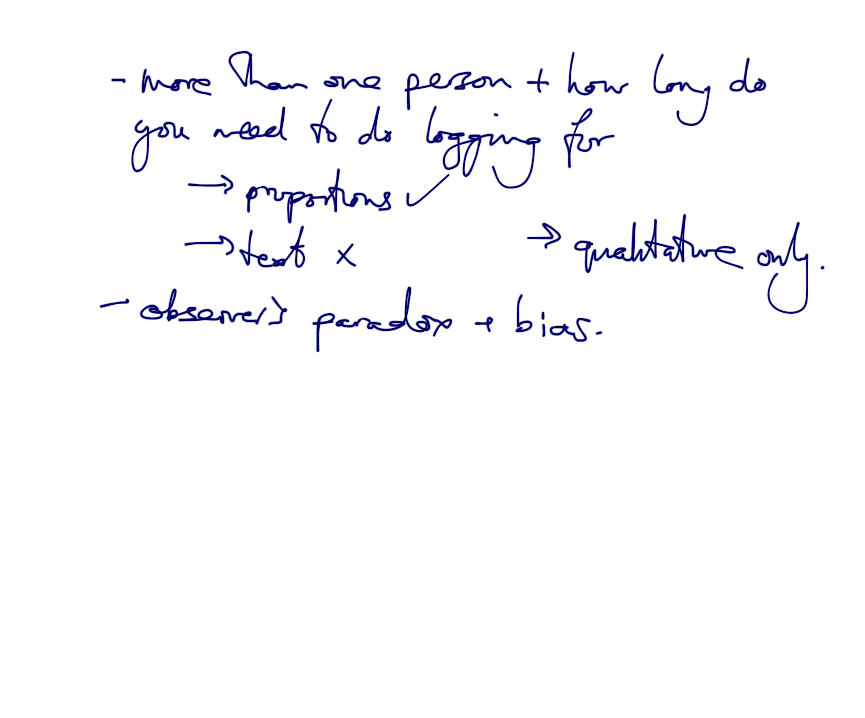 - more than one person + how long do
you need to do logging for
→ proportions ✓
→ text x
→ qualitative only.
- observer's paradox + bias.